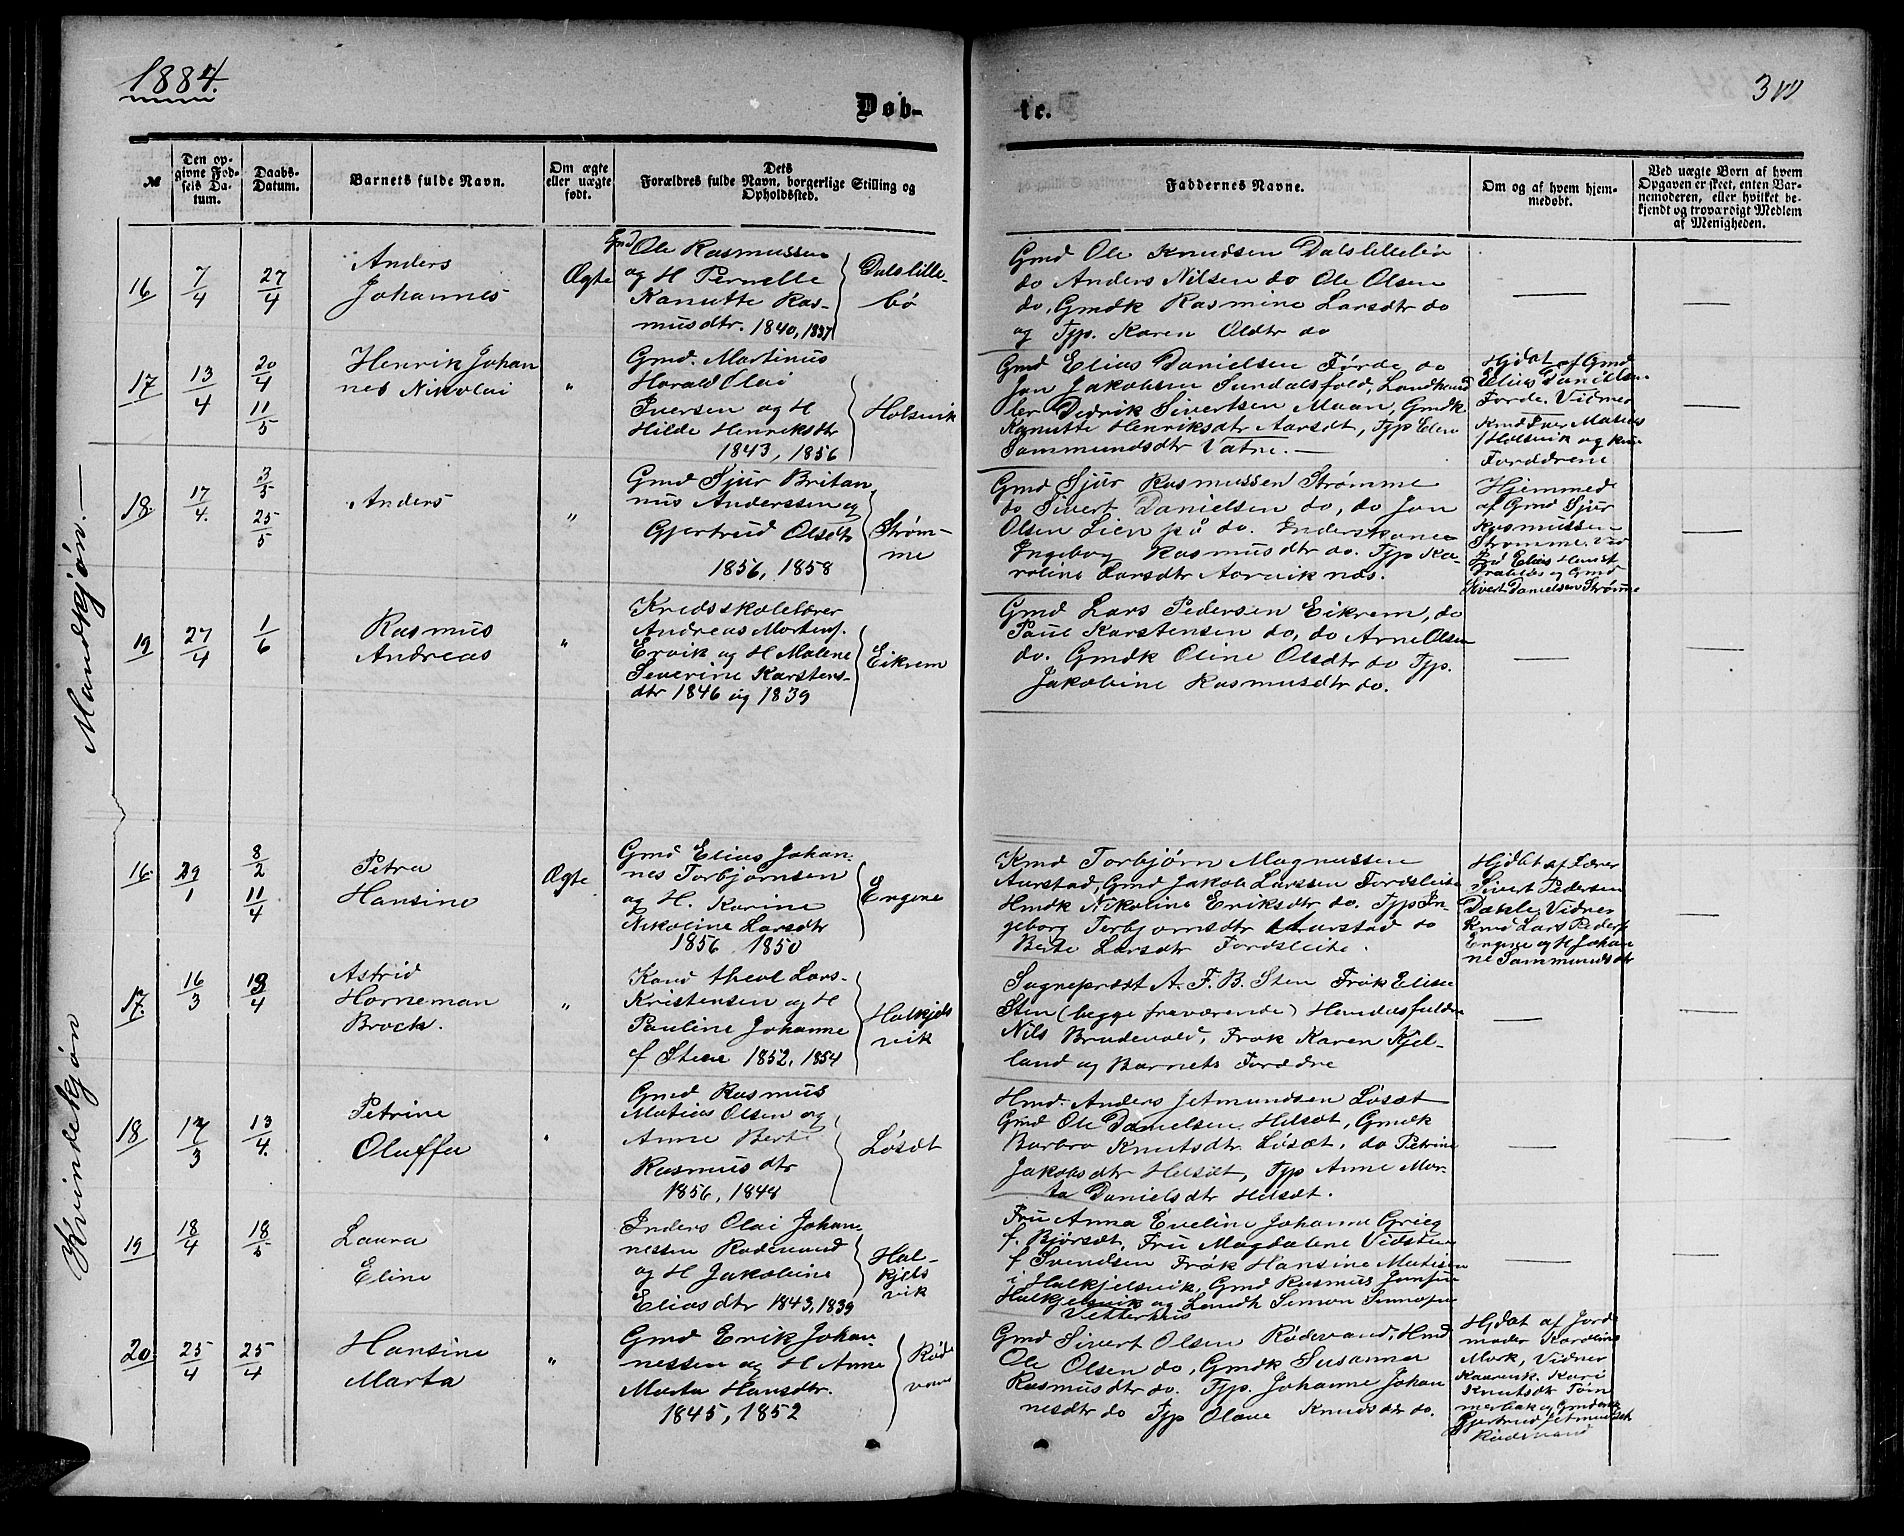 1884.
Døb-
te.
№
Den op-
givne Fød-
sels Da-
tum.
Daabs-
Datum.
Barnets fulde Navn.
Om ægte
eller uægte
født.
Dets
Forældres fulde Navn, borgerlige Stilling og
Opholdssted.
Faddernes Navne.
Om og af hvem hjem-
medøbt.
Ved uægte Børn af hvem
Opgaven er skeet, enten Bar-
nemoderen, eller hvilket be-
kjendt og troværdigt Medlem
af Menigheden.
Mandkjøn.
16
7/4
27/4
Anders
Johannes
Ægte
Gmd Ole Rasmussen
og H Pernelle
Kanutte Ras-
musdtr. 1840, 1837
Dalslille-
bø
Gmd Ole Knudsen Dalslillebø
do Anders Nilsen do Ole Olsen
do, Gmdk Rasmine Larsdtr do
og Tjp. Karen Oldtr do
17
13/4
20/4
11/5
Henrik Johan
nes Nikolai
"
Gmd. Martinus
Harald Olai
Iversen og H
Hilde Henriksdtr
1843, 1856
Holsvik
Gmd Elias Danielsen Førde do
Jon Jakobsen Sundalsfold, Landhand
ler Didrik Sivertsen Maan, Gmdk
Kanutte Henriksdtr Aarsdt, Tjp Elen
Sammundsdtr Vatne.
Hjdøt af Gmd
Elias Danielsen
Førde. Vidner
Holsvik og
Forældrene
18.
17/4.
3/5
25/5
Anders
"
Gmd Sjur Britan
nus Anderssen og
Gjertrud Olsdtr
1856, 1858
Strøm-
me
Gmd Sjur Rasmussen Strømme
do Sivert Danielsen do, do Jon
Olsen Lien på do. Enderskone
Ingeborg Rasmusdtr do. Tjp Ka-
roline Larsdtr Aarviknes.
Hjemmed
af Gmd Sjur
Rasmussen
Strømme. Vid
Elias
og Gmd
Sivert Danielsen Strømme
19
27/4
1/6
Rasmus
Andreas
"
Kredsskolelærer
Andreas Mortens.
Ervik og H Malene
Severine Karstens-
dtr 1846 og 1839
Eikrem
Gmd Lars Pedersen Eikrem, do
Paul Karstensen do, do Arne Olsen
do. Gmdk Oline Olsdtr do Tjp.
Jakobine Rasmusdtr do.
Kvindekjøn
16.
29/1
8/2
11/4
Petra
Hansine
Ægte
Gmd Elias Johan-
nes Torbjørnsen
og H. Karine
Nikoline Larsdtr
1856 1850
Engene
Kmd Torbjørn Magnussen
Aurstad, Gmd Jakob Larssen Fordsleite
Hmdk Nikoline Eriksdtr do. Tjp In-
geborg Torbjørnsdtr Aurstad do
Berte Larsdtr Fordsleite.
Hjdøt af Lærer
Sivert Pedersen
Dækle, Vidner
Kmd Lars Peders
Engene og H Johan
ne Sammundsdtr
17.
16/3
13/4
Astrid
Horneman
Brock.
"
Kand theol Lars
Kristensen og H
Pauline Johanne
f Steen 1852, 1854
Halkjels
vik
Sogneprest A. F. B. Sten Frøk Elise
Sten (begge fraværende)
Nils Brudevold, Frøk Karen Kjel-
land og Barnets Forældre
18
17/3
13/4.
Petrine
Oluffa
"
Gmd Rasmus
Matias Olsen og
Anne Berte
Rasmusdtr
1856, 1848
Løsæt
Hmd. Anders Jetmundsen Løsæt
Gmd Ole Danielsen Helsæt, Gmdk
Barbro Knutsdtr Løsæt, do Petrine
Jakobsdtr Helsæt, Tjp Anne Mar-
ta Danielsdtr Helsæt.
19
18/4
18/5
Laura
Eline
Inders Olai Johan-
nessen Rødevand
og H Jakobine
Eliasdtr 1843, 1839
Hal-
kjels
vik
Fru Anna Eveline Johanne Grieg
f. Bjørsæt, Fru Magdalene Vidsteen
f Svendsen Frøk Hansine Matisen
i Halkjelsvik, Gmd Rasmus
Halkjelsvik og Landh Simon
Vetterhus
20
25/4
25/4
Hansine
Marta
"
Gmd Erik Johan-
nessen og H Anne
Marta Hansdtr.
1845, 1852
Røde
vand
Gmd Sivert Olsen Rødevand, Hmd
Ole Olsen do, Gmdk Susanna
Rasmusdtr do. Tjp. Johanne Johan
nesdtr do Tjp Olave Knudsdtr do.
Hjdøt af Jord
moder Karoline
Mork, Vidner
Kari
Knutsdtr Tøm
merbak og
Gjertrud Jetmundsdtr
Rødevand